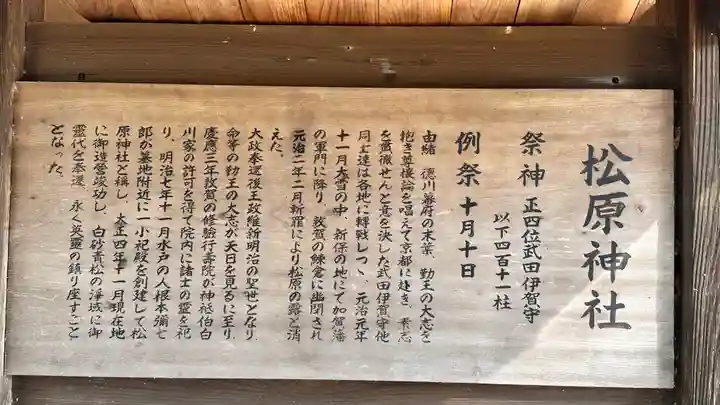 松原神社
祭神 正四位武田伊賀守
以下四百十一柱
例祭 十月十日
由緒 德川幕府の末葉、勤王の大志を
抱き尊攘論を唱えて京都に赴き、素志
を貫徹せんと意を決した武田伊賀守他
同士達は各地に轉戦しつゝ、元治元年
十一月大雪の中、新保の地にて加賀藩
の軍門に降り、敦賀の鰊倉に幽閉され
元治二年二月斬罪により松原の露と消
えた。
大政奉還後王政維新明治の聖世となり
命等の勤王の大志が天日を見るに至り
慶應三年敦賀の修驗行壽院が神祇伯白
川家の許可を得て院内に諸士の靈を祀
り、明治七年十一月水戸の人根本彌七
郎が墓地附近に一小祀殿を創建して松
原神社と稱し、大正四年十一月現在地
に御造營竣功し、白砂青松の浄域に御
靈代を奉遷、永く英靈の鎮り座すこと
となった。